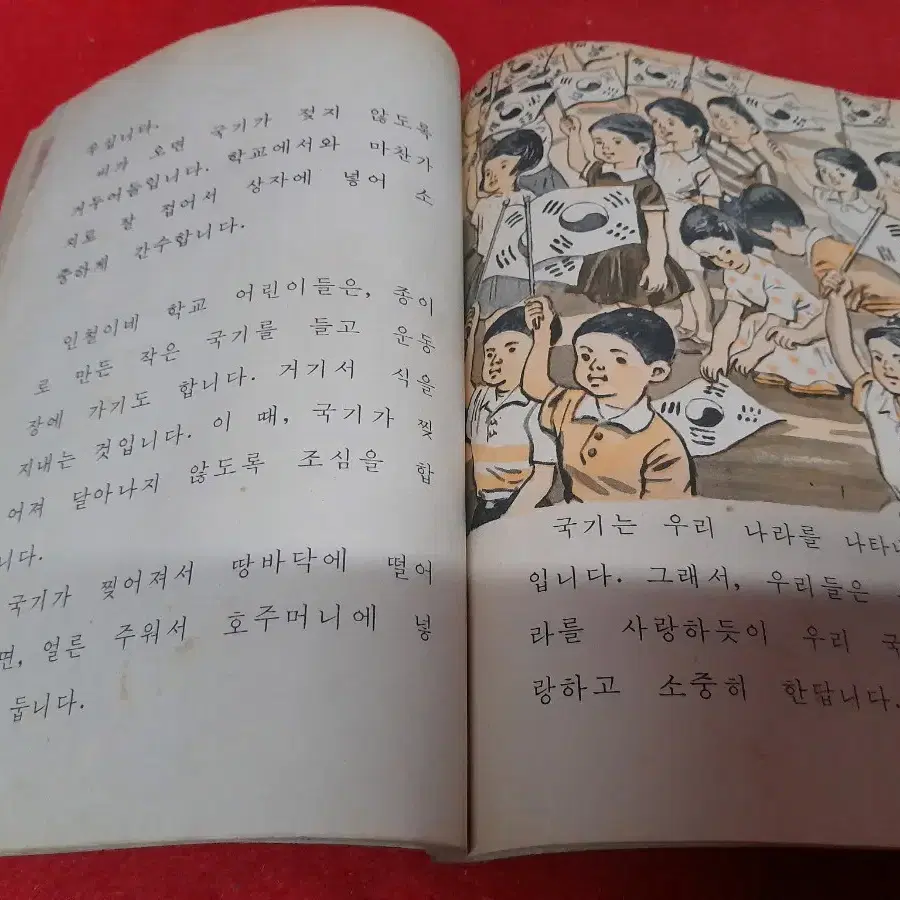 우십니다.
비가 오면 국기가 젖지 않도록
거두어들입니다. 학교에서와 마찬가
지로 잘 접어서 상자에 넣어 소
중하게 간수합니다.
인철이네 학교 어린이들은, 종이
로 만든 작은 국기를 들고 운동
장에 가기도 합니다. 거기서 식을
지내는 것입니다. 이 때, 국기가 찢
어져 달아나지 않도록 조심을 합
니다.
국기가 찢어져서 땅바닥에 떨어
면, 얼른 주워서 호주머니에 넣
둡니다.
국기는 우리 나라를 나타내
입니다. 그래서, 우리들은
라를 사랑하듯이 우리 국
랑하고 소중히 한답니다.